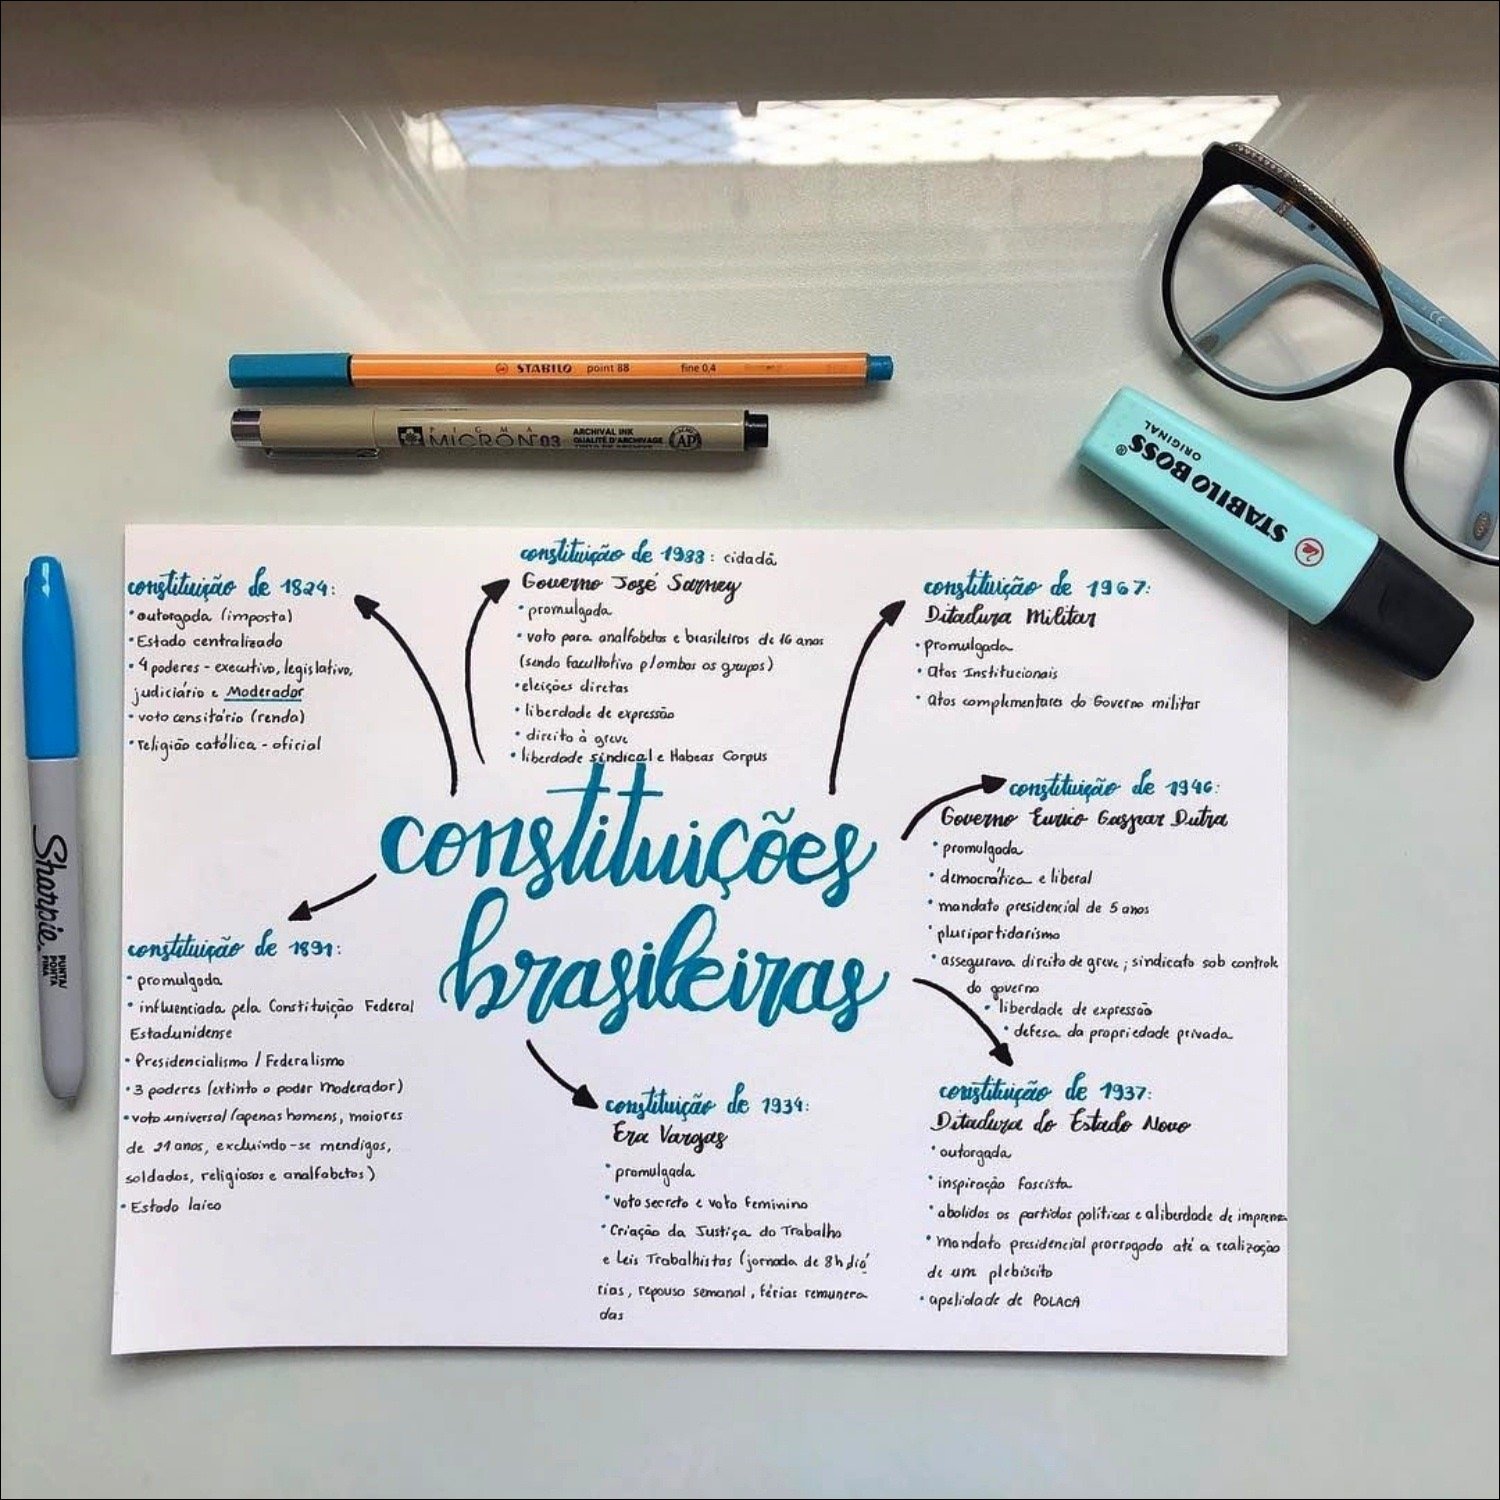 STABILO point 88 fine 0,4
PIGMA
MICRON 03
ARCHIVAL INK
QUALITÉ D'ARCHIVAGE
AP
STABILO BOSS®
ORIGINAL
Sharpie.
PUNTA/
PONTA
FINA
constituição de 1824:
• outorgada (imposta)
• Estado centralizado
• 4 poderes - executivo, legislativo,
judiciário e Moderador
• voto censitário (renda)
• religião católica - oficial
constituição de 1988: cidadã
Governo José Sarney
• promulgada
• voto para analfabetos e brasileiros de 16 anos
(sendo facultativo p/ ambos os grupos)
• eleições diretas
• liberdade de expressão
• direito à greve
• liberdade sindical e Habeas Corpus
constituição de 1967:
Ditadura Militar
• promulgada
• Atos Institucionais
• atos complementares do Governo militar
constituições
brasileiras
constituição de 1946:
Governo Eurico Gaspar Dutra
• promulgada
• democrática e liberal
• mandato presidencial de 5 anos
• pluripartidarismo
• assegurava direito de greve; sindicato sob controle
do governo
• liberdade de expressão
• defesa da propriedade privada
constituição de 1891:
• promulgada
• influenciada pela Constituição Federal
Estadunidense
• Presidencialismo / Federalismo
• 3 poderes (extinto o poder Moderador)
• voto universal (apenas homens, maiores
de 21 anos, excluindo-se mendigos,
soldados, religiosos e analfabetos)
• Estado laico
constituição de 1934:
Era Vargas
• promulgada
• voto secreto e voto feminino
• Criação da Justiça do Trabalho
e Leis Trabalhistas (jornada de 8h diá
rias, repouso semanal, férias remunera
das
constituição de 1937:
Ditadura do Estado Novo
• outorgada
• inspiração fascista
• abolidos os partidos políticos e a liberdade de imprensa
• mandato presidencial prorrogado até a realização
de um plebiscito
• apelidade de POLACA